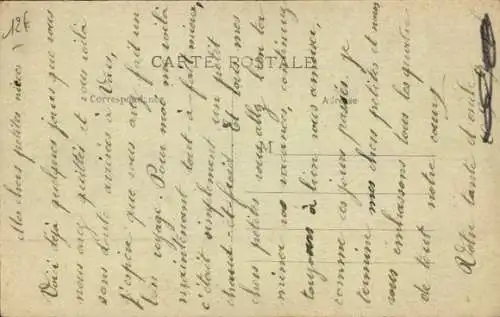 125
CARTE POSTALE
Correspondance
Adresse
M
Mes chères petites nièces
Voici déjà quelques jours que vous
nous avez quittés et vous voilà
sans doute arrivées à Paris,
j'espère que vous avez fait un
bon voyage. Pour moi me voilà
maintenant tout à fait mieux,
c'était simplement un petit
chaud et froid. Et tout mes
chers petits vous allez bien la
miner vos vacances, continuez
toujours à bien vous amuser,
comme ces jours passés. Je
termine mes chers petites et nous
vous embrassons tous les quatre
de tout notre cœur.
Votre tante et oncle